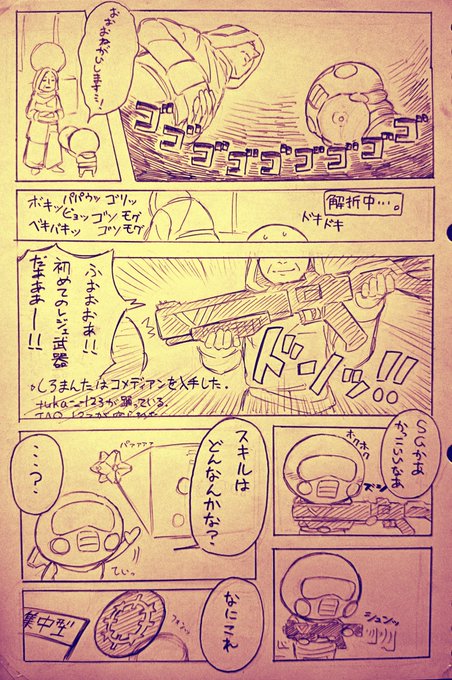 おなおねがいします…!
ゴゴゴゴゴゴゴゴゴ
解析中…。
ドキドキ
ボキッ パパウッ ゴリッ
ピョッ ゴソ モグ
ベキバキッ ゴソモグ
ふぉおおぁ!!
初めてのレジェ武器
だぁああー!!
ドンッ!!
しろまんたはコメディアンを入手した。
SGかぁ
かっこいいなぁ
ホクホク
ズシ
ジュンッ
スキルは
どんなんかな?
パァァァァ
…?
なにこれ
集中型